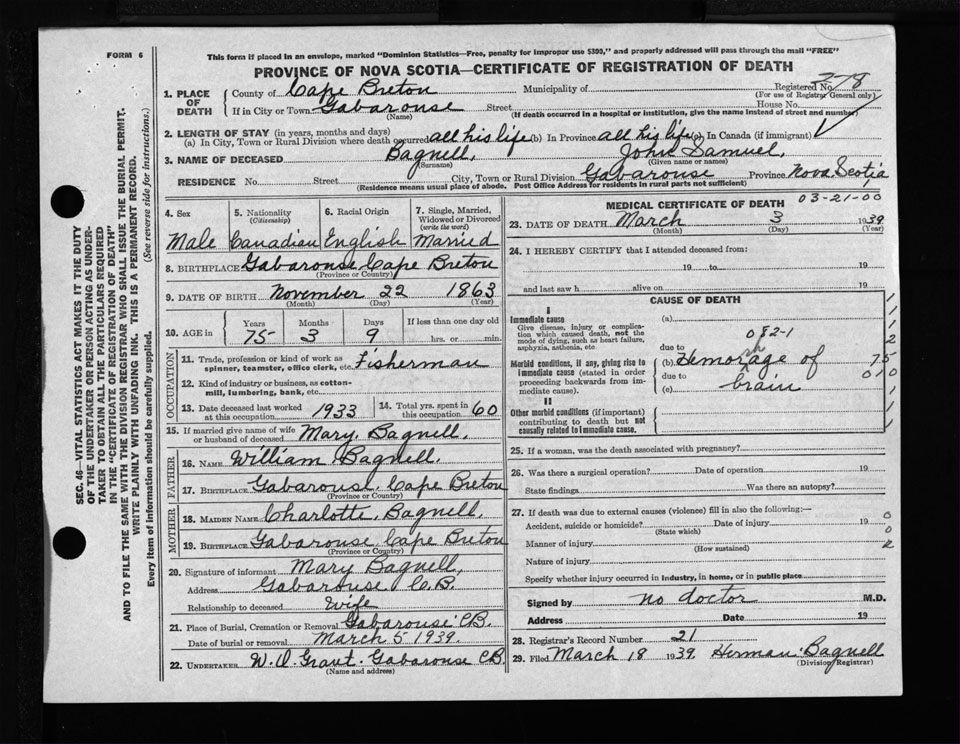 FORM 6
This form if placed in an envelope, marked "Dominion Statistics—Free, penalty for improper use $300," and properly addressed will pass through the mail "FREE"
PROVINCE OF NOVA SCOTIA—CERTIFICATE OF REGISTRATION OF DEATH
378
1. PLACE OF DEATH
County of Cape Breton Municipality of Registered No.
(For use of Registrar General only)
If in City or Town Gabarouse Street House No.
(Name) (If death occurred in a hospital or institution, give the name instead of street and number)
2. LENGTH OF STAY (in years, months and days)
(a) In City, Town or Rural Division where death occurred all his life (b) In Province all his life (c) In Canada (if immigrant)
3. NAME OF DECEASED Bagnell, John Samuel,
(Surname) (Given name or names)
RESIDENCE No. Street City, Town or Rural Division Gabarouse Province Nova Scotia
(Residence means usual place of abode. Post Office Address for residents in rural parts not sufficient)
4. Sex 5. Nationality (Citizenship) 6. Racial Origin 7. Single, Married, Widowed or Divorced (write the word)
Male Canadian English Married
8. BIRTHPLACE Gabarouse Cape Breton
(Province or Country)
9. DATE OF BIRTH November 22 1863
(Month) (Day) (Year)
10. AGE in Years Months Days If less than one day old
75 3 9 hrs. or min.
OCCUPATION
11. Trade, profession or kind of work as spinner, teamster, office clerk, etc. Fisherman
12. Kind of industry or business, as cotton-mill, lumbering, bank, etc.
13. Date deceased last worked at this occupation 1933 14. Total yrs. spent in this occupation 60
15. If married give name of wife or husband of deceased Mary Bagnell,
FATHER
16. NAME William Bagnell.
17. BIRTHPLACE Gabarouse, Cape Breton
(Province or Country)
MOTHER
18. MAIDEN NAME Charlotte, Bagnell,
19. BIRTHPLACE Gabarouse, Cape Breton
(Province or Country)
20. Signature of informant Mary Bagnell,
Address Gabarouse C.B.
Relationship to deceased Wife
21. Place of Burial, Cremation or Removal Gabarouse CB.
Date of burial or removal March 5 1939.
22. UNDERTAKER W. D. Grant. Gabarouse CB.
(Name and address)
MEDICAL CERTIFICATE OF DEATH 03-21-00
23. DATE OF DEATH March 3 1939
(Month) (Day) (Year)
24. I HEREBY CERTIFY that I attended deceased from:
19 to 19
and last saw h alive on 19
CAUSE OF DEATH
I
Immediate cause (a)
Give disease, injury or complication which caused death, not the mode of dying, such as heart failure, asphyxia, asthenia, etc.
082-1
due to
Morbid conditions, if any, giving rise to immediate cause (stated in order proceeding backwards from immediate cause).
(b) Hemorrhage of
due to
(c) brain
75
010
II
Other morbid conditions (if important) contributing to death but not causally related to immediate cause.
25. If a woman, was the death associated with pregnancy?
26. Was there a surgical operation? Date of operation 19
State findings Was there an autopsy?
27. If death was due to external causes (violence) fill in also the following:—
Accident, suicide or homicide? Date of injury 19
(State which)
Manner of injury
(How sustained)
Nature of injury
Specify whether injury occurred in industry, in home, or in public place
0
0
2
Signed by no doctor M.D.
Address Date 19
28. Registrar's Record Number 21
29. Filed March 18 1939. Herman Bagnell
(Division Registrar)
SEC. 46—VITAL STATISTICS ACT MAKES IT THE DUTY
OF THE UNDERTAKER OR PERSON ACTING AS UNDER-
TAKER TO OBTAIN ALL THE PARTICULARS REQUIRED
IN THE "CERTIFICATE OF REGISTRATION OF DEATH"
AND TO FILE THE SAME WITH THE DIVISION REGISTRAR WHO SHALL ISSUE THE BURIAL PERMIT.
WRITE PLAINLY WITH UNFADING INK. THIS IS A PERMANENT RECORD.
Every item of information should be carefully supplied. (See reverse side for instructions.)